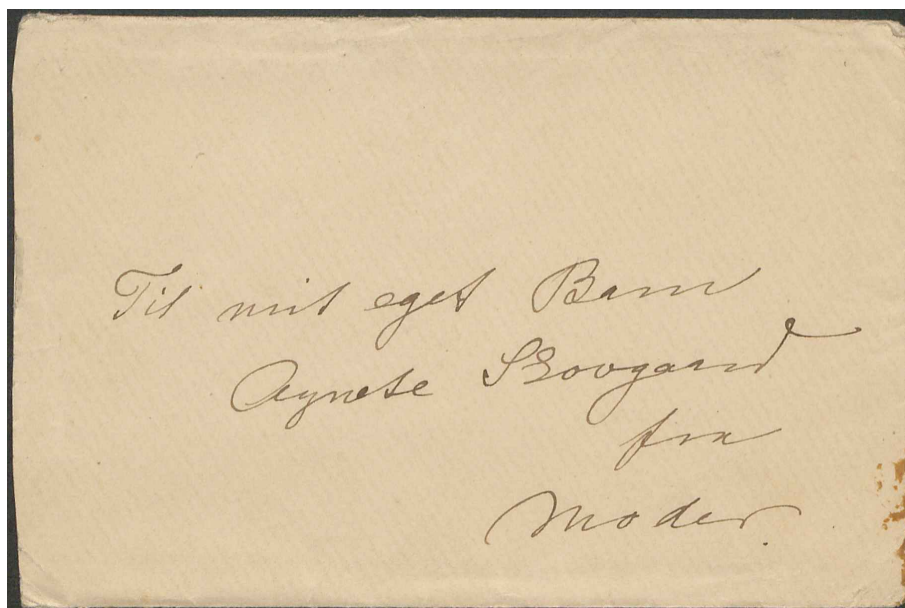 Til mit eget Barn
Agnete Skovgaard
fra
Moder.